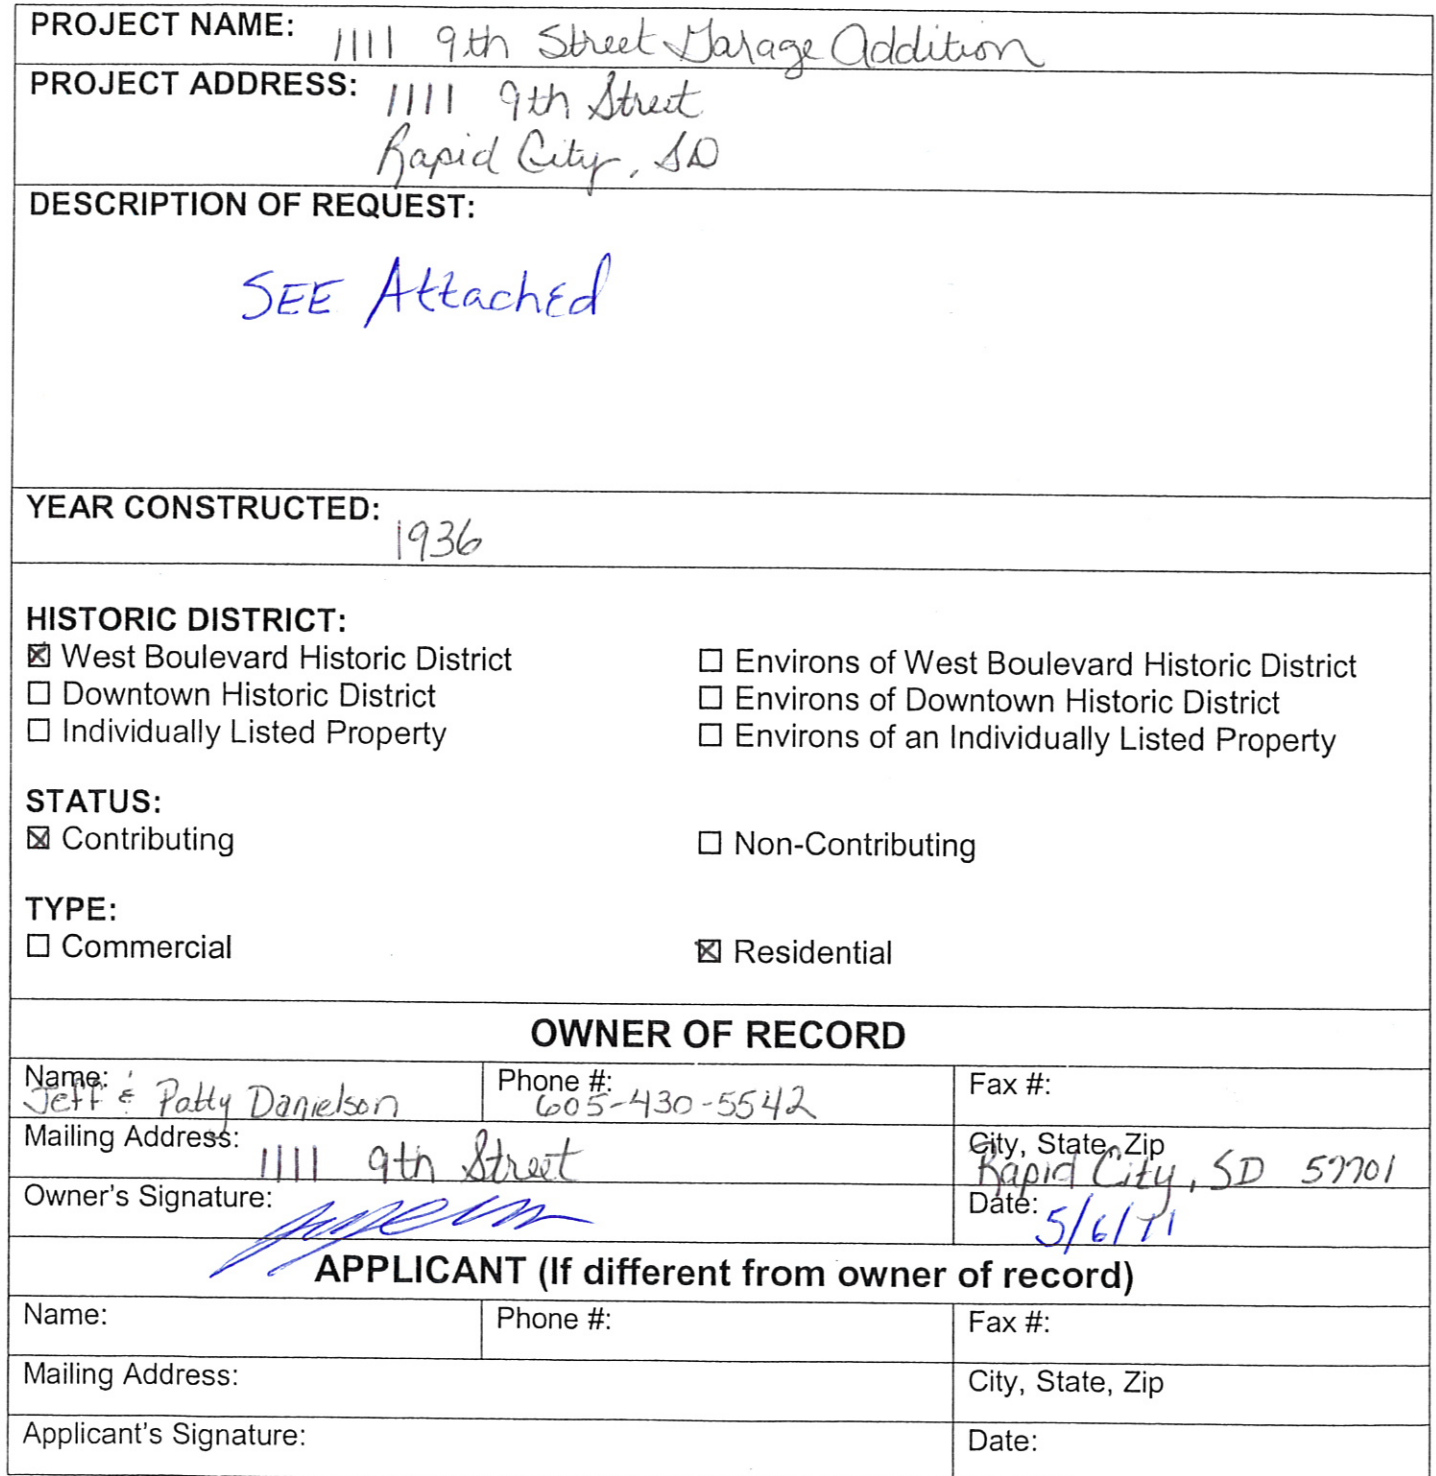 PROJECT NAME: 1111 9th Street Garage Addition
PROJECT ADDRESS: 1111 9th Street
Rapid City, SD
DESCRIPTION OF REQUEST:
SEE Attached
YEAR CONSTRUCTED: 1936
HISTORIC DISTRICT:
☒ West Boulevard Historic District ☐ Environs of West Boulevard Historic District
☐ Downtown Historic District ☐ Environs of Downtown Historic District
☐ Individually Listed Property ☐ Environs of an Individually Listed Property
STATUS:
☒ Contributing ☐ Non-Contributing
TYPE:
☐ Commercial ☒ Residential
OWNER OF RECORD
Name: Jeff & Patty Danielson Phone #: 605-430-5542 Fax #:
Mailing Address: 1111 9th Street City, State, Zip Rapid City, SD 57701
Owner's Signature: Date: 5/6/11
APPLICANT (If different from owner of record)
Name: Phone #: Fax #:
Mailing Address: City, State, Zip
Applicant's Signature: Date: